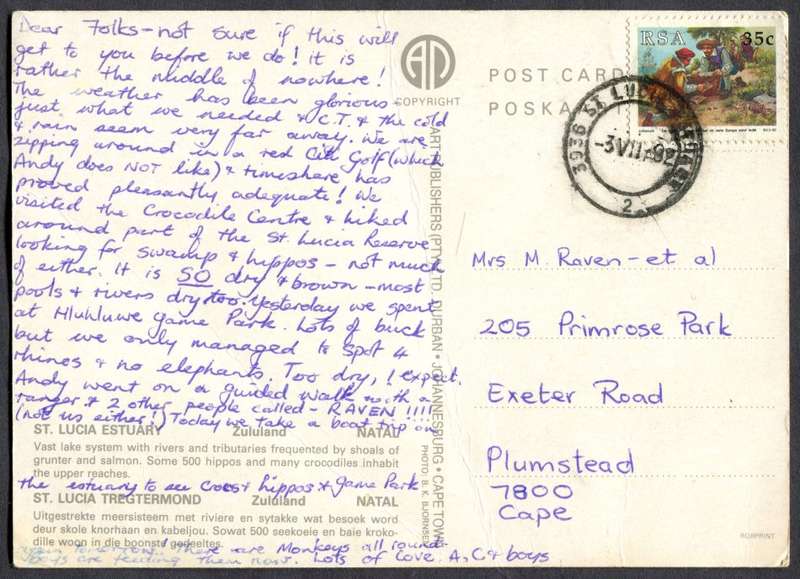 Dear Folks - not sure if this will
get to you before we do! it is
rather the middle of nowhere!
The weather has been glorious -
just what we needed & C.T. & the cold
& rain seem very far away. We are
zipping around in a red Citi Golf (which
Andy does NOT like) & timeshare has
proved pleasantly adequate! We
visited the Crocodile Centre & hiked
around part of the St. Lucia Reserve
looking for swamp & hippos - not much
of either. It is SO dry & brown - most
pools & rivers dry too. Yesterday we spent
at Hluhluwe game Park. Lots of buck
but we only managed to spot 4
rhinos & no elephants. Too dry, I expect.
Andy went on a guided walk with a
ranger & 2 other people called - RAVEN !!!!
(not us either!) Today we take a boat trip on
ST. LUCIA ESTUARY Zululand NATAL
Vast lake system with rivers and tributaries frequented by shoals of
grunter and salmon. Some 500 hippos and many crocodiles inhabit
the upper reaches.
the estuary to see crocs & hippos & game Park
ST. LUCIA TREGTERMOND Zululand NATAL
Uitgestrekte meersisteem met riviere en sytakke wat besoek word
deur skole knorhaan en kabeljou. Sowat 500 seekoeie en baie kroko-
dille woon in die boonste gedeeltes.
again tomorrow! There are Monkeys all round
boys are feeding them now. Lots of love. A, C & boys
AD
COPYRIGHT
ART PUBLISHERS (PTY) LTD. DURBAN • JOHANNESBURG • CAPE TOWN
PHOTO: B. K. BJORNSEN
POST CARD
POSKA
RSA 35c
3936 ST. LUCIA
-3 VII 92
2
Mrs M. Raven - et al
205 Primrose Park
Exeter Road
Plumstead
7800
Cape